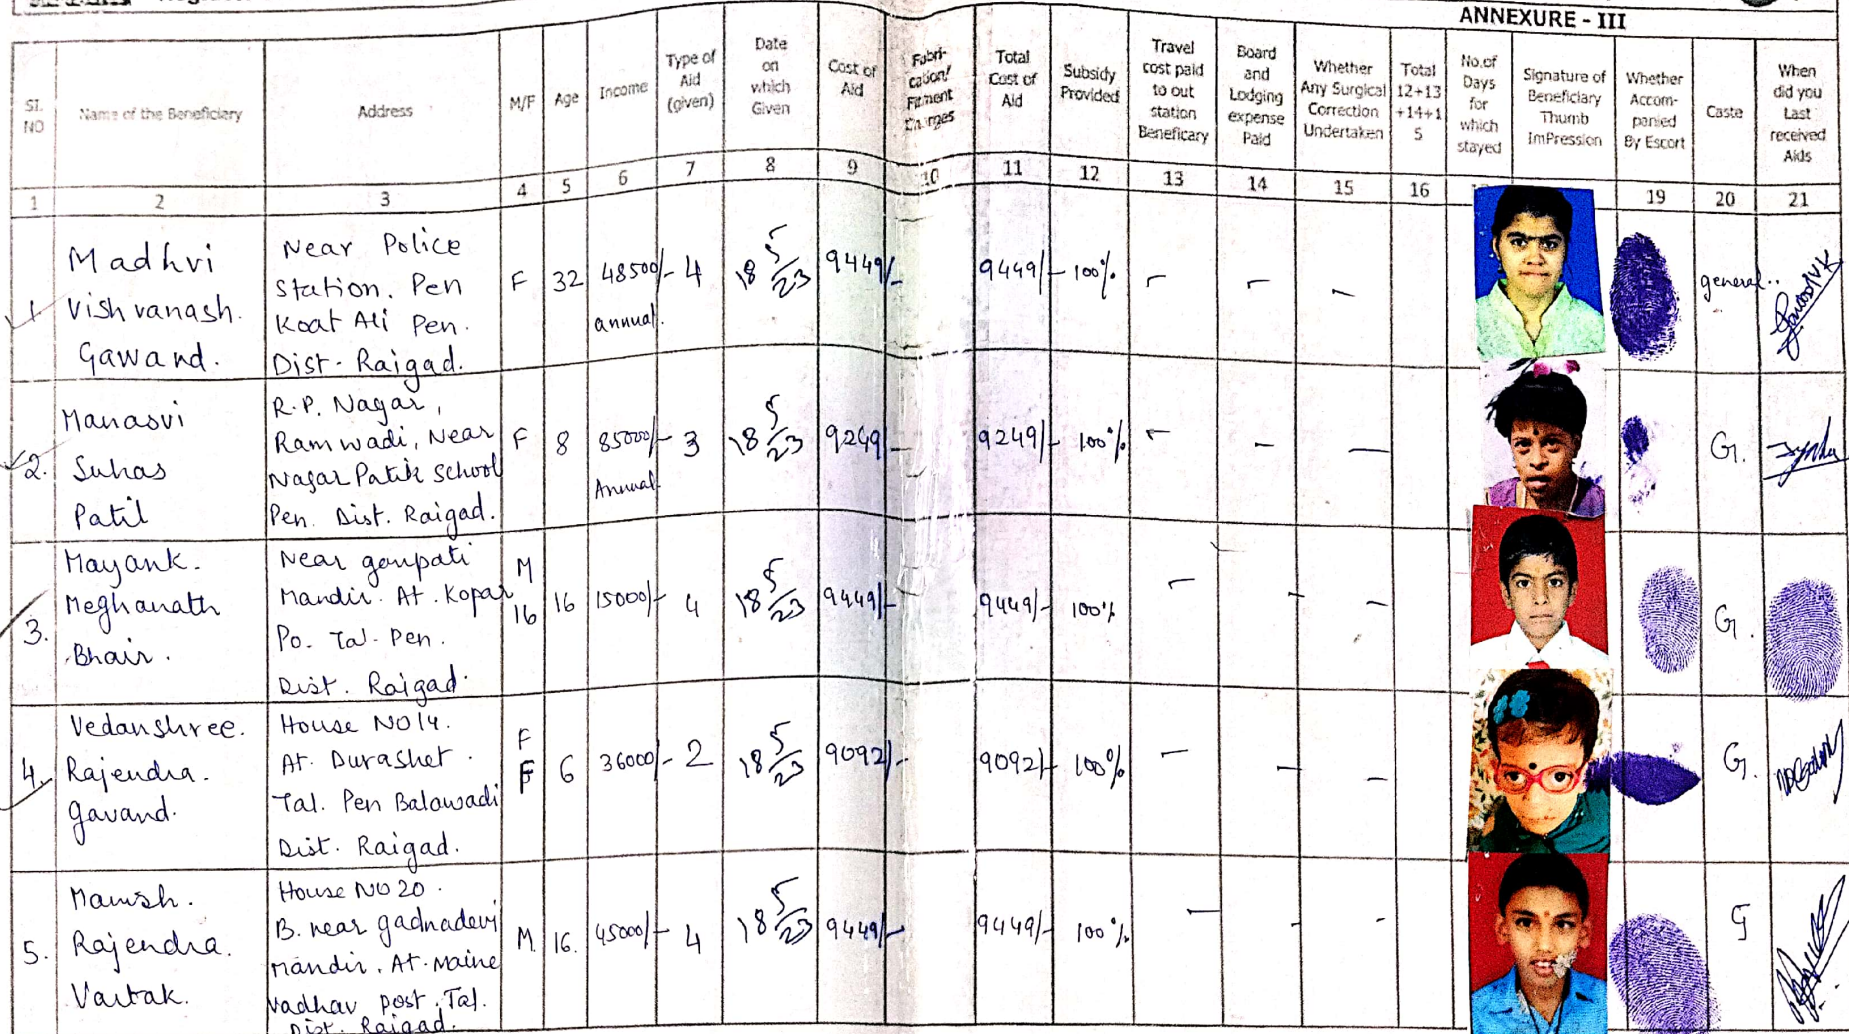 ANNEXURE - III
SI. NO
Name of the Beneficiary
Address
M/F
Age
Income
Type of Aid (given)
Date on which Given
Cost of Aid
Fabri-cation/ Fitment Charges
Total Cost of Aid
Subsidy Provided
Travel cost paid to out station Beneficary
Board and Lodging expense Paid
Whether Any Surgical Correction Undertaken
Total 12+13 +14+1 5
No.of Days for which stayed
Signature of Beneficiary Thumb ImPression
Whether Accom-panied By Escort
Caste
When did you Last received Aids
1 2 3 4 5 6 7 8 9 10 11 12 13 14 15 16 19 20 21
1.
Madhvi
Vishvanash.
Gawand.
Near Police
Station. Pen
Koat Ali Pen.
Dist- Raigad.
F 32 48500/- annual. 4 18/5/23 9449/- 9449/- 100% - - - general..
2.
Manasvi
Suhas
Patil
R.P. Nagar,
Ramwadi, Near
Nagar Patik School
Pen. Dist. Raigad.
F 8 85000/- Annual 3 18/5/23 9249/- 9249/- 100% - - - G.
3.
Mayank.
Meghanath
Bhair.
Near ganpati
Mandir. At. Kopar
Po. Tal. Pen.
Dist. Raigad.
M 16 16 15000/- 4 18/5/23 9449/- 9449/- 100% - - - G.
4.
Vedanshree.
Rajendra.
Gavand.
House NO 14.
At. Durashet.
Tal. Pen Balawadi
Dist. Raigad.
F F 6 36000/- 2 18/5/23 9092/- 9092/- 100% - - - G.
5.
Manish.
Rajendra.
Vartak.
House NO 20.
B. near gadnadevi
mandir. At. Maine
vadhav post. Tal.
Dist. Raigad.
M. 16. 45000/- 4 18/5/23 9449/- 9449/- 100% - - - G